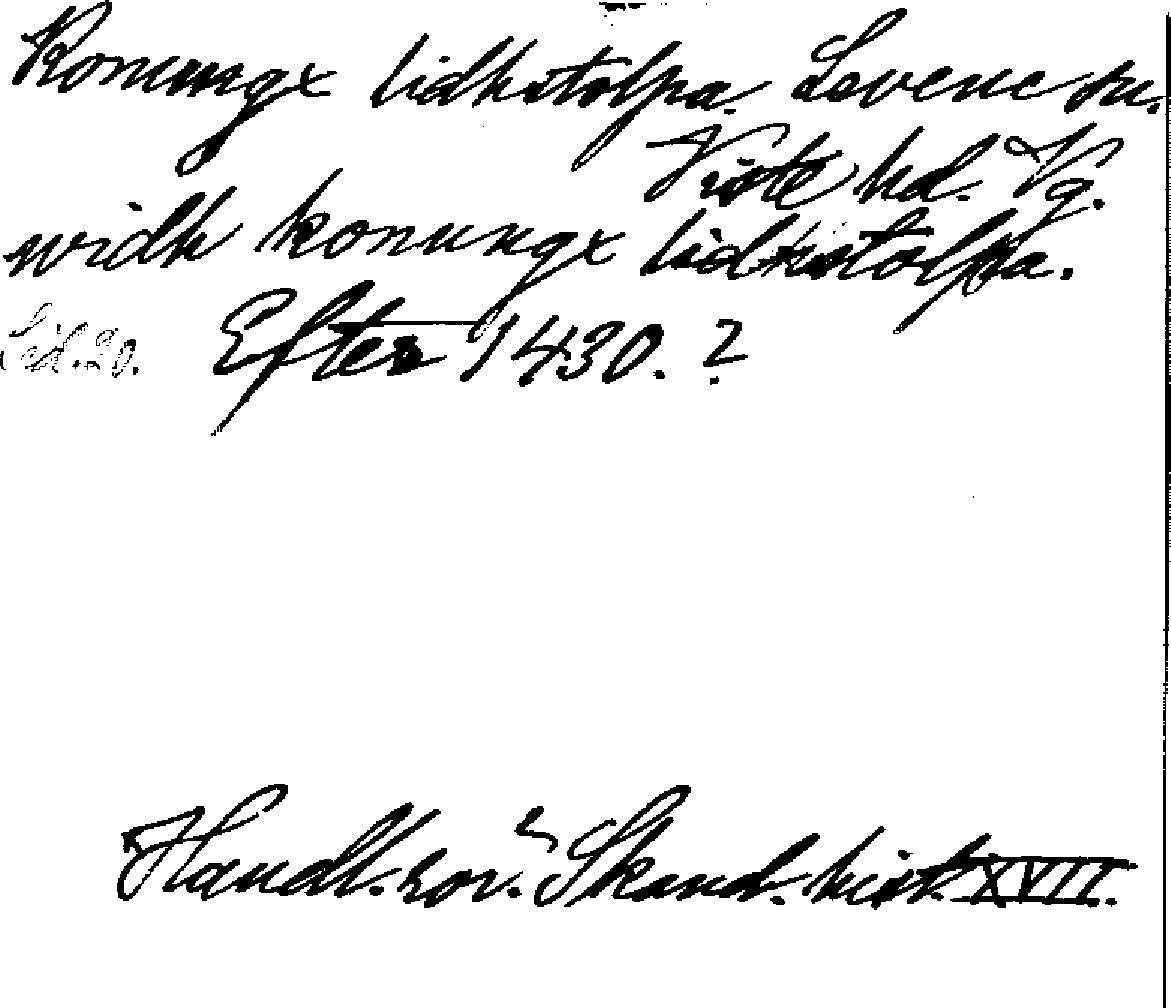 Konungx lidhstolpa. Levene sn.
Viste hd. Vg.
widh konungx lidhstolpa.
Sid. 20. Efter 1430. ?
Handl. rör. Skand. hist. XVII.